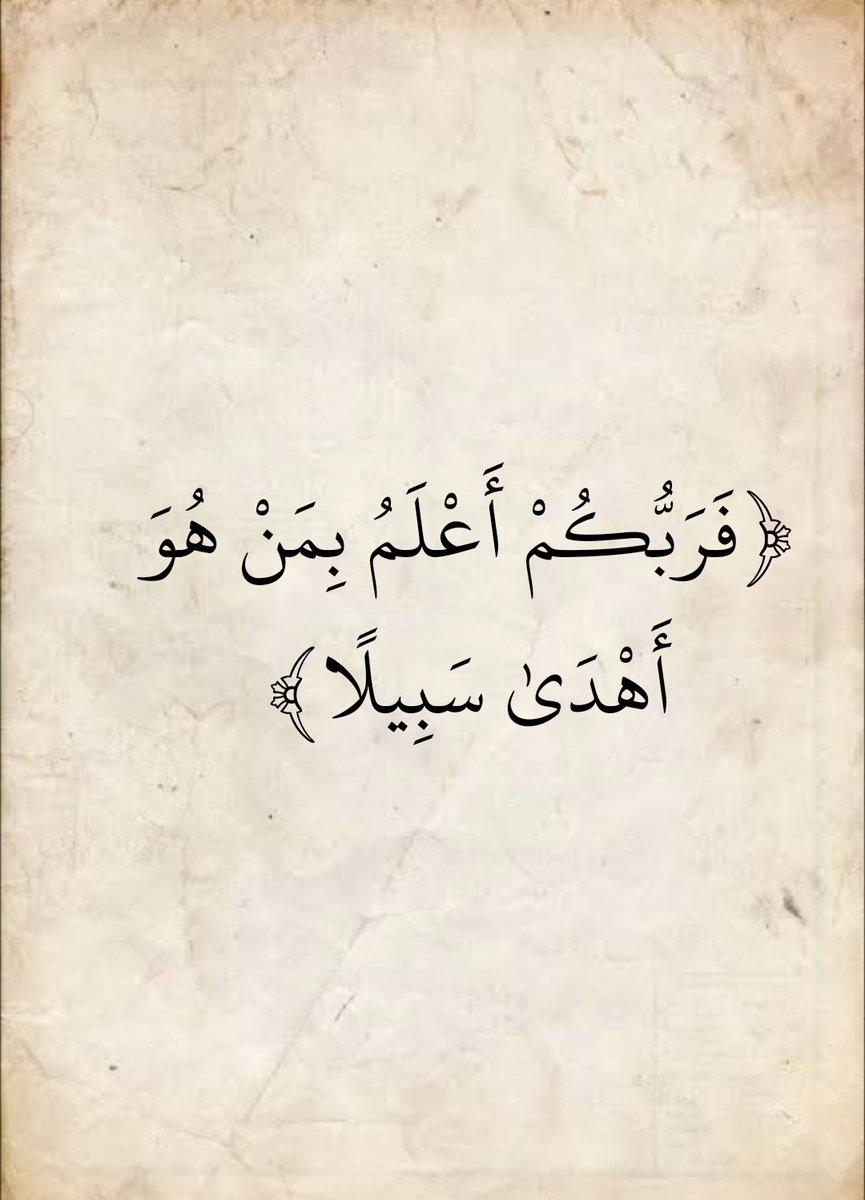 ﴿فَرَبُّكُمْ أَعْلَمُ بِمَنْ هُوَ
أَهْدَىٰ سَبِيلًا﴾